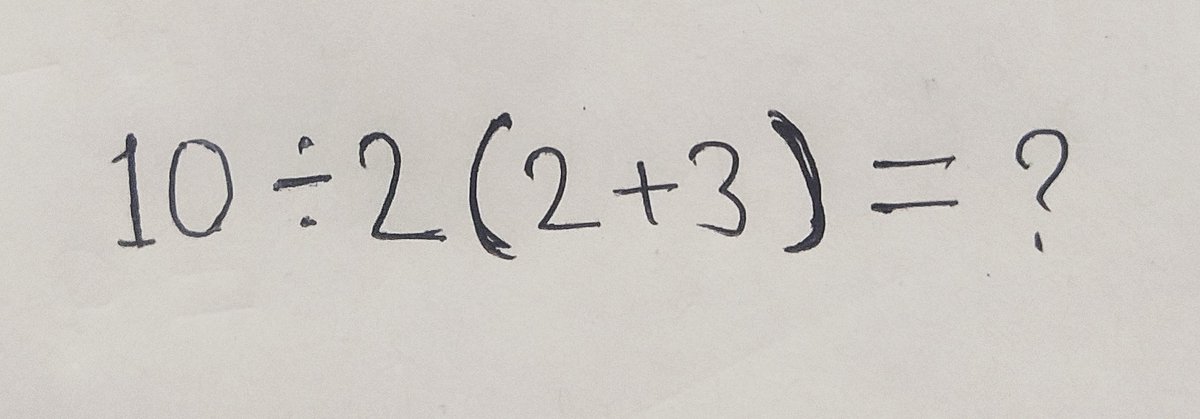 10÷2(2+3)=?